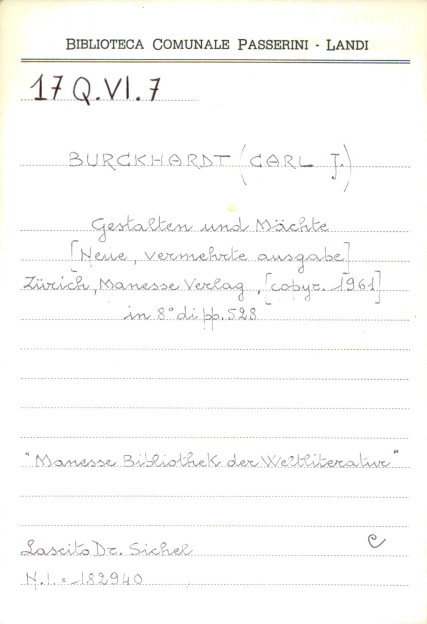 BIBLIOTECA COMUNALE PASSERINI - LANDI
17 Q.VI.7
BURCKHARDT (CARL J.)
Gestalten und Mächte
[Neue, vermehrte ausgabe]
Zürich, Manesse Verlag, [copyr. 1961]
in 8° di pp. 528
"Manesse Bibliothek der Weltliteratur"
Lascito Dr. Sichel
e
N.I. = 182940